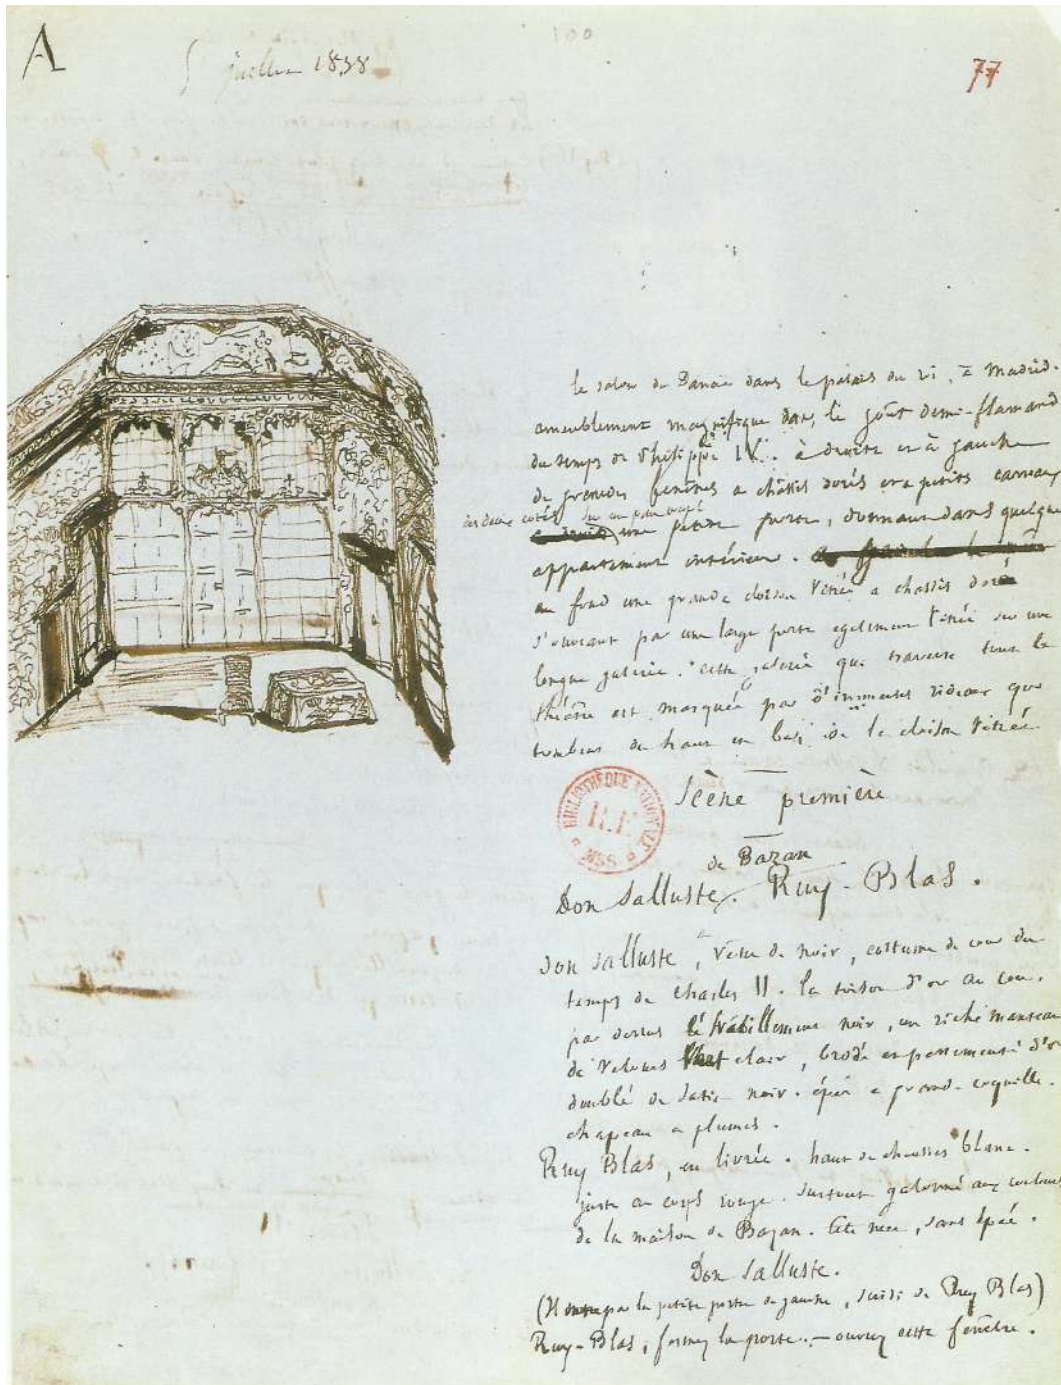 A
5 juillet 1838
100
77
le salon de Danaé dans le palais du roi, à Madrid.
ameublement magnifique dans le goût demi-flamand
du temps de Philippe IV. à droite et à gauche
de grandes fenêtres à châssis dorés et à petits carreaux
des deux côtés, sur un pan coupé
une petite porte, donnant dans quelque
appartement intérieur.
au fond une grande cloison vitrée à chassis dorés
s'ouvrant par une large porte egalement vitrée sur une
longue galerie. cette galerie qui traverse tout le
théâtre est masquée par d'immenses rideaux qui
tombent du haut en bas de la cloison vitrée.
Scène première
de Bazan
Don Salluste. Ruy-Blas.
Don Salluste, vêtu de noir, costume de cour du
temps de Charles II. la toison d'or au cou.
par dessus l'habillement noir, un riche manteau
de velours vert clair, brodé et passementé d'or
doublé de satin noir. épée à grande coquille.
chapeau à plumes.
Ruy Blas, en livrée. haut de chausses blanc.
juste au corps rouge. surtout galonné aux couleurs
de la maison de Bazan. tête nue, sans épée.
Don Salluste.
(Il entre par la petite porte de gauche, suivi de Ruy Blas)
Ruy-Blas, fermez la porte. — ouvrez cette fenêtre.
BIBLIOTHÈQUE
MSS